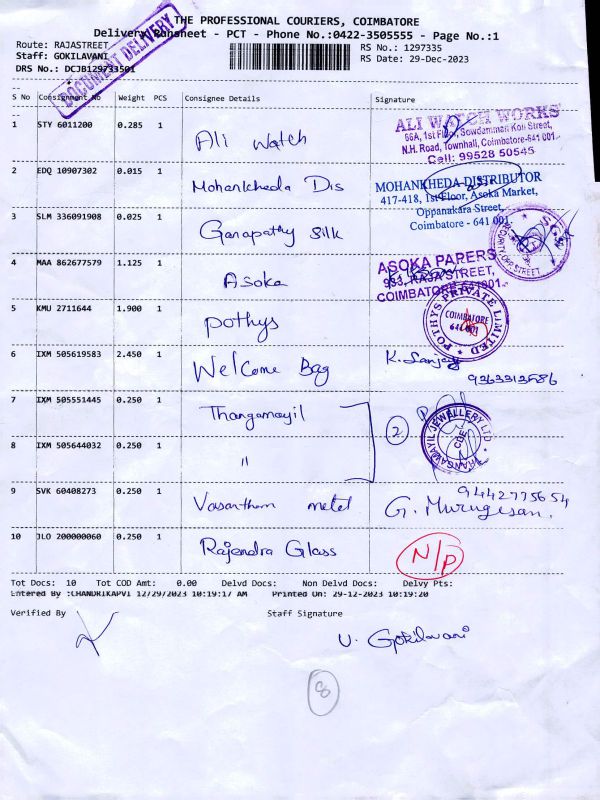 THE PROFESSIONAL COURIERS, COIMBATORE
Delivery Runsheet - PCT - Phone No.:0422-3505555 - Page No.:1
Route: RAJASTREET
Staff: GOKILAVANI
DRS No.: DCJB129733501
RS No.: 1297335
RS Date: 29-Dec-2023
DOCUMENT DELIVERY
S No Consignment No Weight PCS Consignee Details Signature
1 STY 6011200 0.285 1 Ali Watch
ALI WATCH WORKS
66A, 1st Floor, Sowdamman Koil Street,
N.H. Road, Townhall, Coimbatore-641 001.
Cell: 99528 50545
2 EDQ 10907302 0.015 1 Mohankheda Dis
MOHANKHEDA DISTRIBUTOR
417-418, 1st Floor, Asoka Market,
Oppanakara Street,
Coimbatore - 641 001.
3 SLM 336091908 0.025 1 Ganapathy Silk
4 MAA 862677579 1.125 1 Asoka
ASOKA PAPERS
933, RAJA STREET,
COIMBATORE-641001
5 KMU 2711644 1.900 1 Pothys
POTHYS PRIVATE LIMITED
COIMBATORE
641 001
6 IXM 505619583 2.450 1 Welcome Bag K. Sanjay
9363313586
7 IXM 505551445 0.250 1 Thangamayil 2
THANGAMAYIL JEWELLERY LTD
CBE
8 IXM 505644032 0.250 1 "
9 SVK 60408273 0.250 1 Vasantham metel G. Murugesan.
9442775654
10 JLO 200000060 0.250 1 Rajendra Glass N/P
Tot Docs: 10 Tot COD Amt: 0.00 Delvd Docs: Non Delvd Docs: Delvy Pts:
Entered By :CHANDRIKAPVI 12/29/2023 10:19:17 AM Printed On: 29-12-2023 10:19:20
Verified By Staff Signature
V. Gokilavani
8